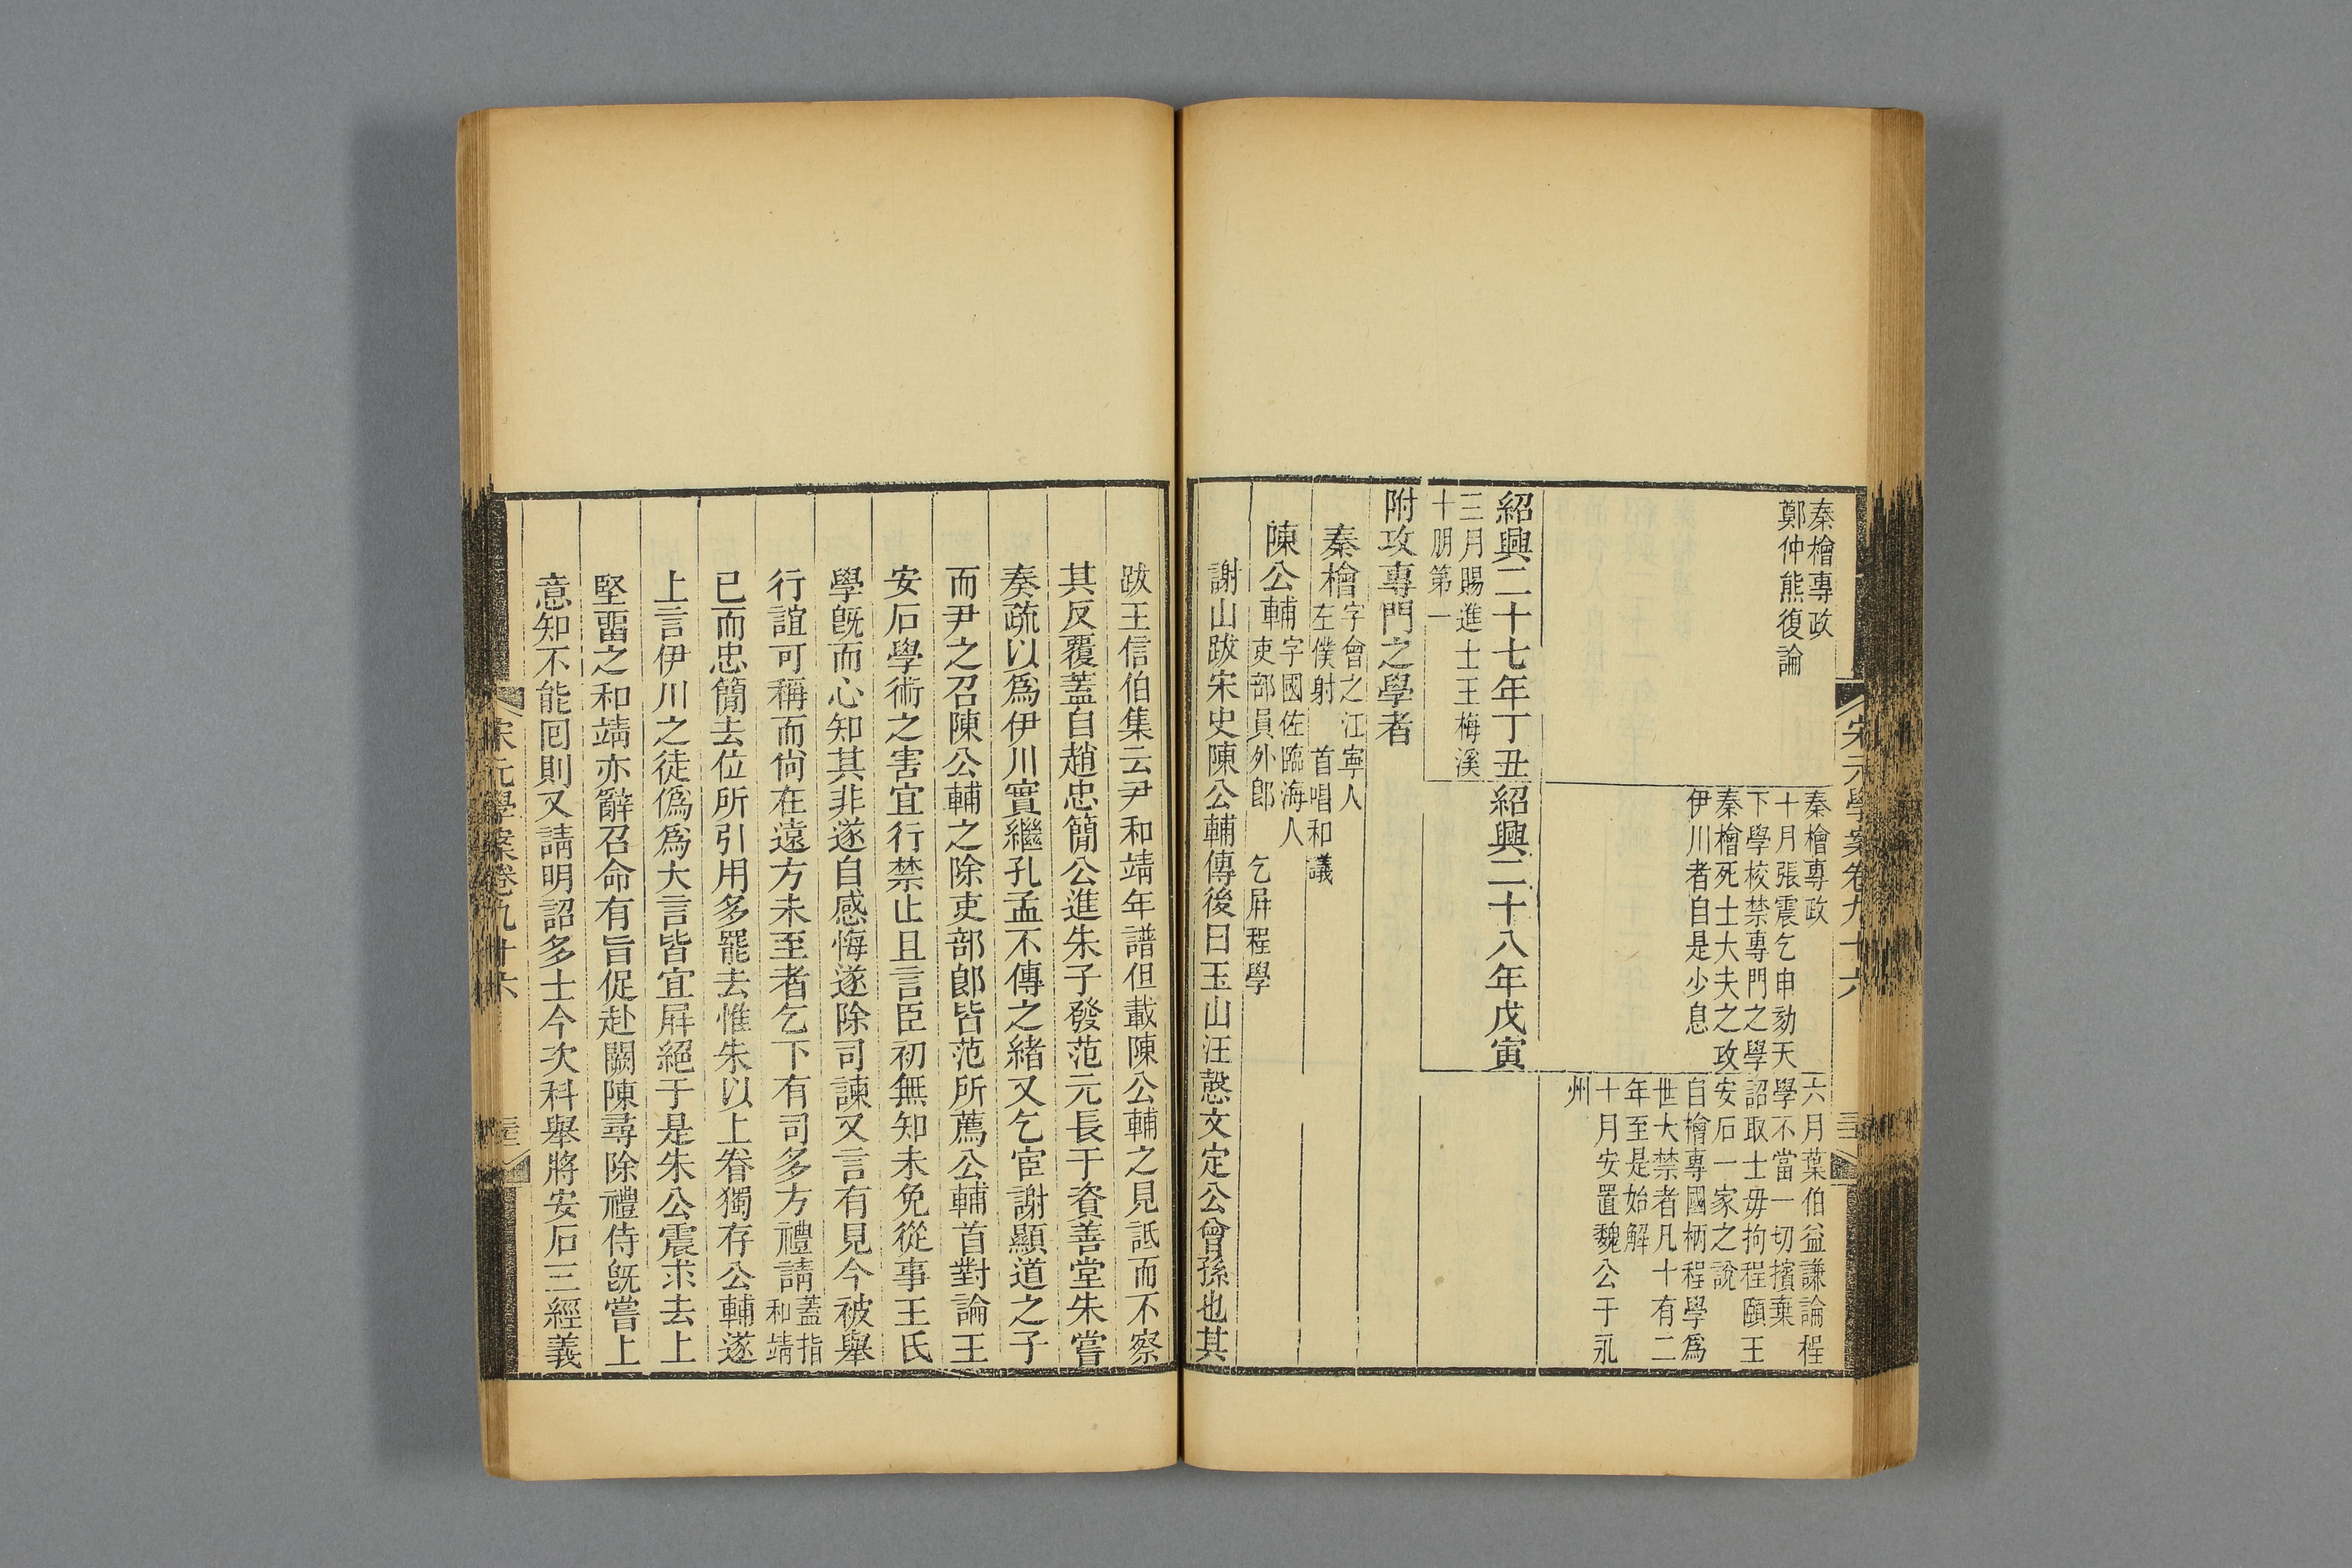 宋元學案卷九十六
秦檜專政
鄭仲熊復論
秦檜專政
十月張震乞申勅天
下學校禁專門之學
秦檜死士大夫之攻
伊川者自是少息
六月葉伯益謙論程
學不當一切擯棄
詔取士毋拘程頤王
安石一家之說
自檜專國柄程學爲
世大禁者凡十有二
年至是始解
十月安置魏公于永
州
紹興二十七年丁丑
紹興二十八年戊寅
三月賜進士王梅溪
十朋第一
附攻專門之學者
秦檜字會之江寧人
左僕射 首唱和議
陳公輔字國佐臨海人
吏部員外郎 乞屛程學
謝山跋宋史陳公輔傳後曰玉山汪愨文定公曾孫也其
跋王信伯集云尹和靖年譜但載陳公輔之見詆而不察
其反覆蓋自趙忠簡公進朱子發范元長于資善堂朱嘗
奏疏以爲伊川實繼孔孟不傳之緒又乞官謝顯道之子
而尹之召陳公輔之除吏部郎皆范所薦公輔首對論王
安石學術之害宜行禁止且言臣初無知未免從事王氏
學旣而心知其非遂自感悔遂除司諫又言有見今被舉
行誼可稱而尙在遠方未至者乞下有司多方禮請蓋指
和靖
已而忠簡去位所引用多罷去惟朱以上眷獨存公輔遂
上言伊川之徒僞爲大言皆宜屛絕于是朱公震求去上
堅畱之和靖亦辭召命有旨促赴闕陳尋除禮侍旣嘗上
意知不能囘則又請明詔多士今次科舉將安石三經義
宋元學案卷九十六